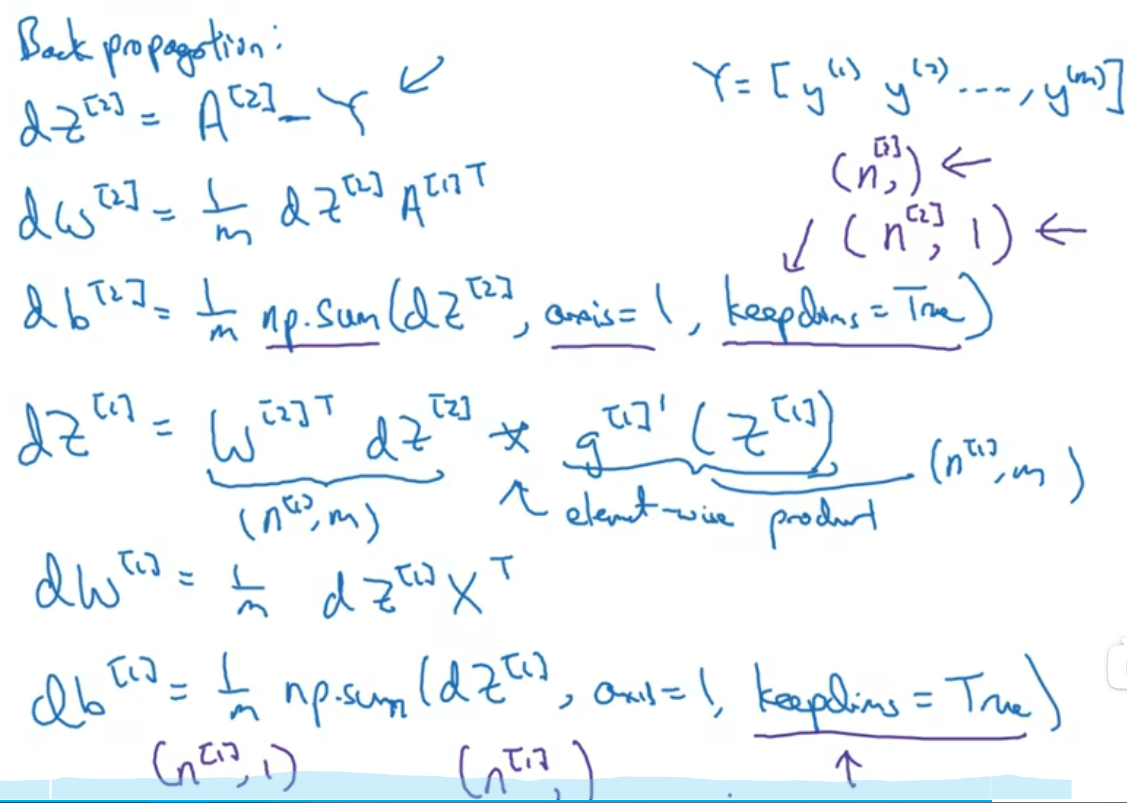 Back propagation:
dZ^[2] = A^[2] - Y ↙
Y = [y^(1) y^(2) ...., y^(m)]
dW^[2] = 1/m dZ^[2] A^[1]T
(n^[2],) ←
↓ (n^[2], 1) ←
db^[2] = 1/m np.sum(dZ^[2], axis=1, keepdims=True)
dZ^[1] = W^[2]T dZ^[2] * g^[1]'(Z^[1])
(n^[1], m) ↖ element-wise product (n^[1], m)
dW^[1] = 1/m dZ^[1] X^T
db^[1] = 1/m np.sum(dZ^[1], axis=1, keepdims=True)
(n^[1], 1) (n^[1],) ↑